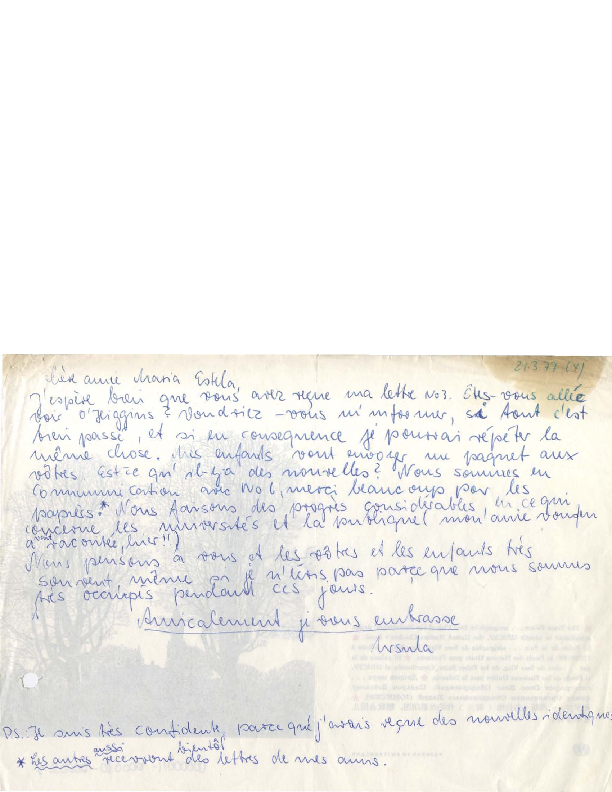 21-3-77 (4)
Chère amie Maria Estela,
J'espère bien que vous avez reçue ma lettre No3. Êtes-vous allée
voir O'Higgins? Voudriez-vous m'informer, si tout c'est
bien passé, et si en consequence je pourrai répéter la
même chose. Mes enfants vont envoyer un paquet aux
vôtres. Est-ce qu'il-y-a des nouvelles? Nous sommes en
Communication avec No 6, merci beaucoup por les
papiers.* Nous faisons des progrès considérables en ce qui
concerne les universités et la publique
a vous racontée, hier!!)
Nous pensons à vous et les vôtres et les enfants très
souvent, même si je n'écris pas parce que nous sommes
très occupés pendant ces jours.
Amicalement je vous embrasse
Ursula
PS. Je suis très confidente, parce que j'avais reçue des nouvelles identiques
* Les autres aussi recevront bientôt des lettres de mes amis.